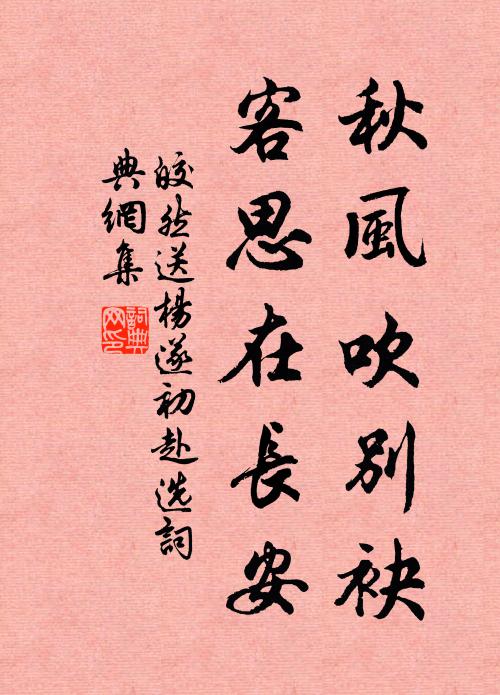 秋風吹別袂
客思在長安
皎然送楊遂初赴選詞
典網集
詞典
网印